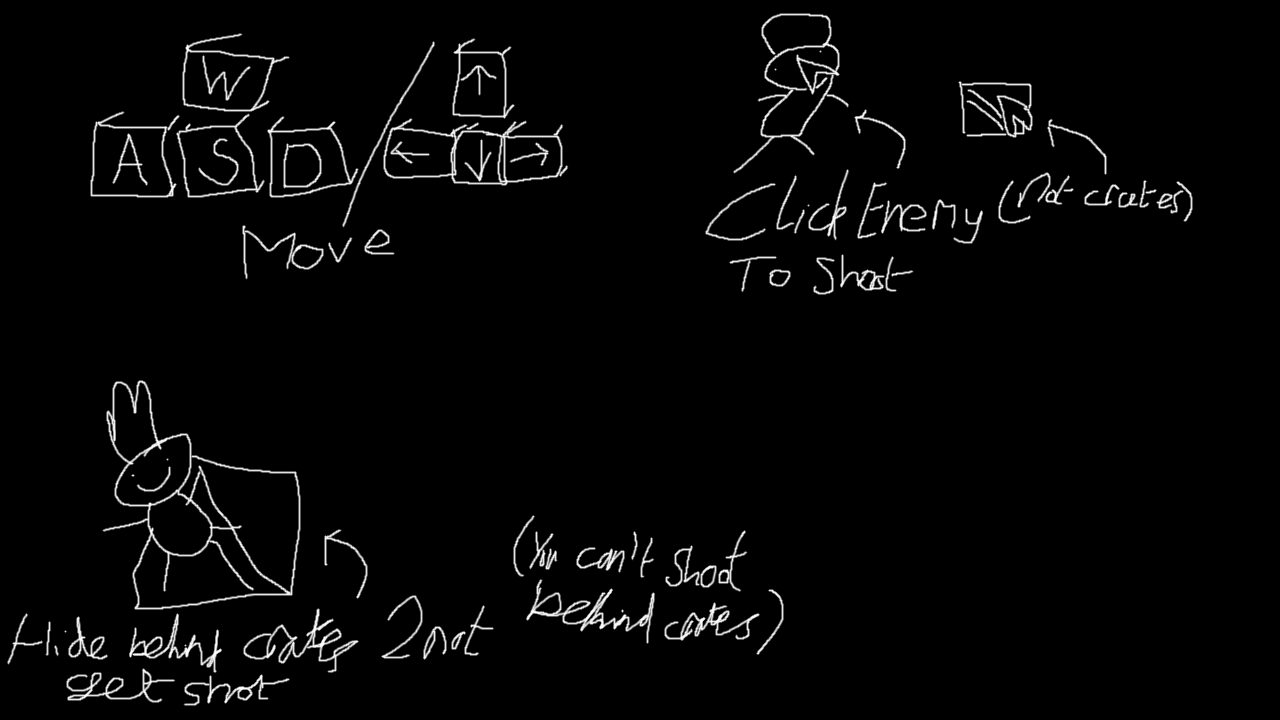 W
A S D
↑
← ↓ →
Move
Click Enemy (Not crates)
To Shoot
Hide behind crates 2 not
get shot
(You can't shoot
behind crates)